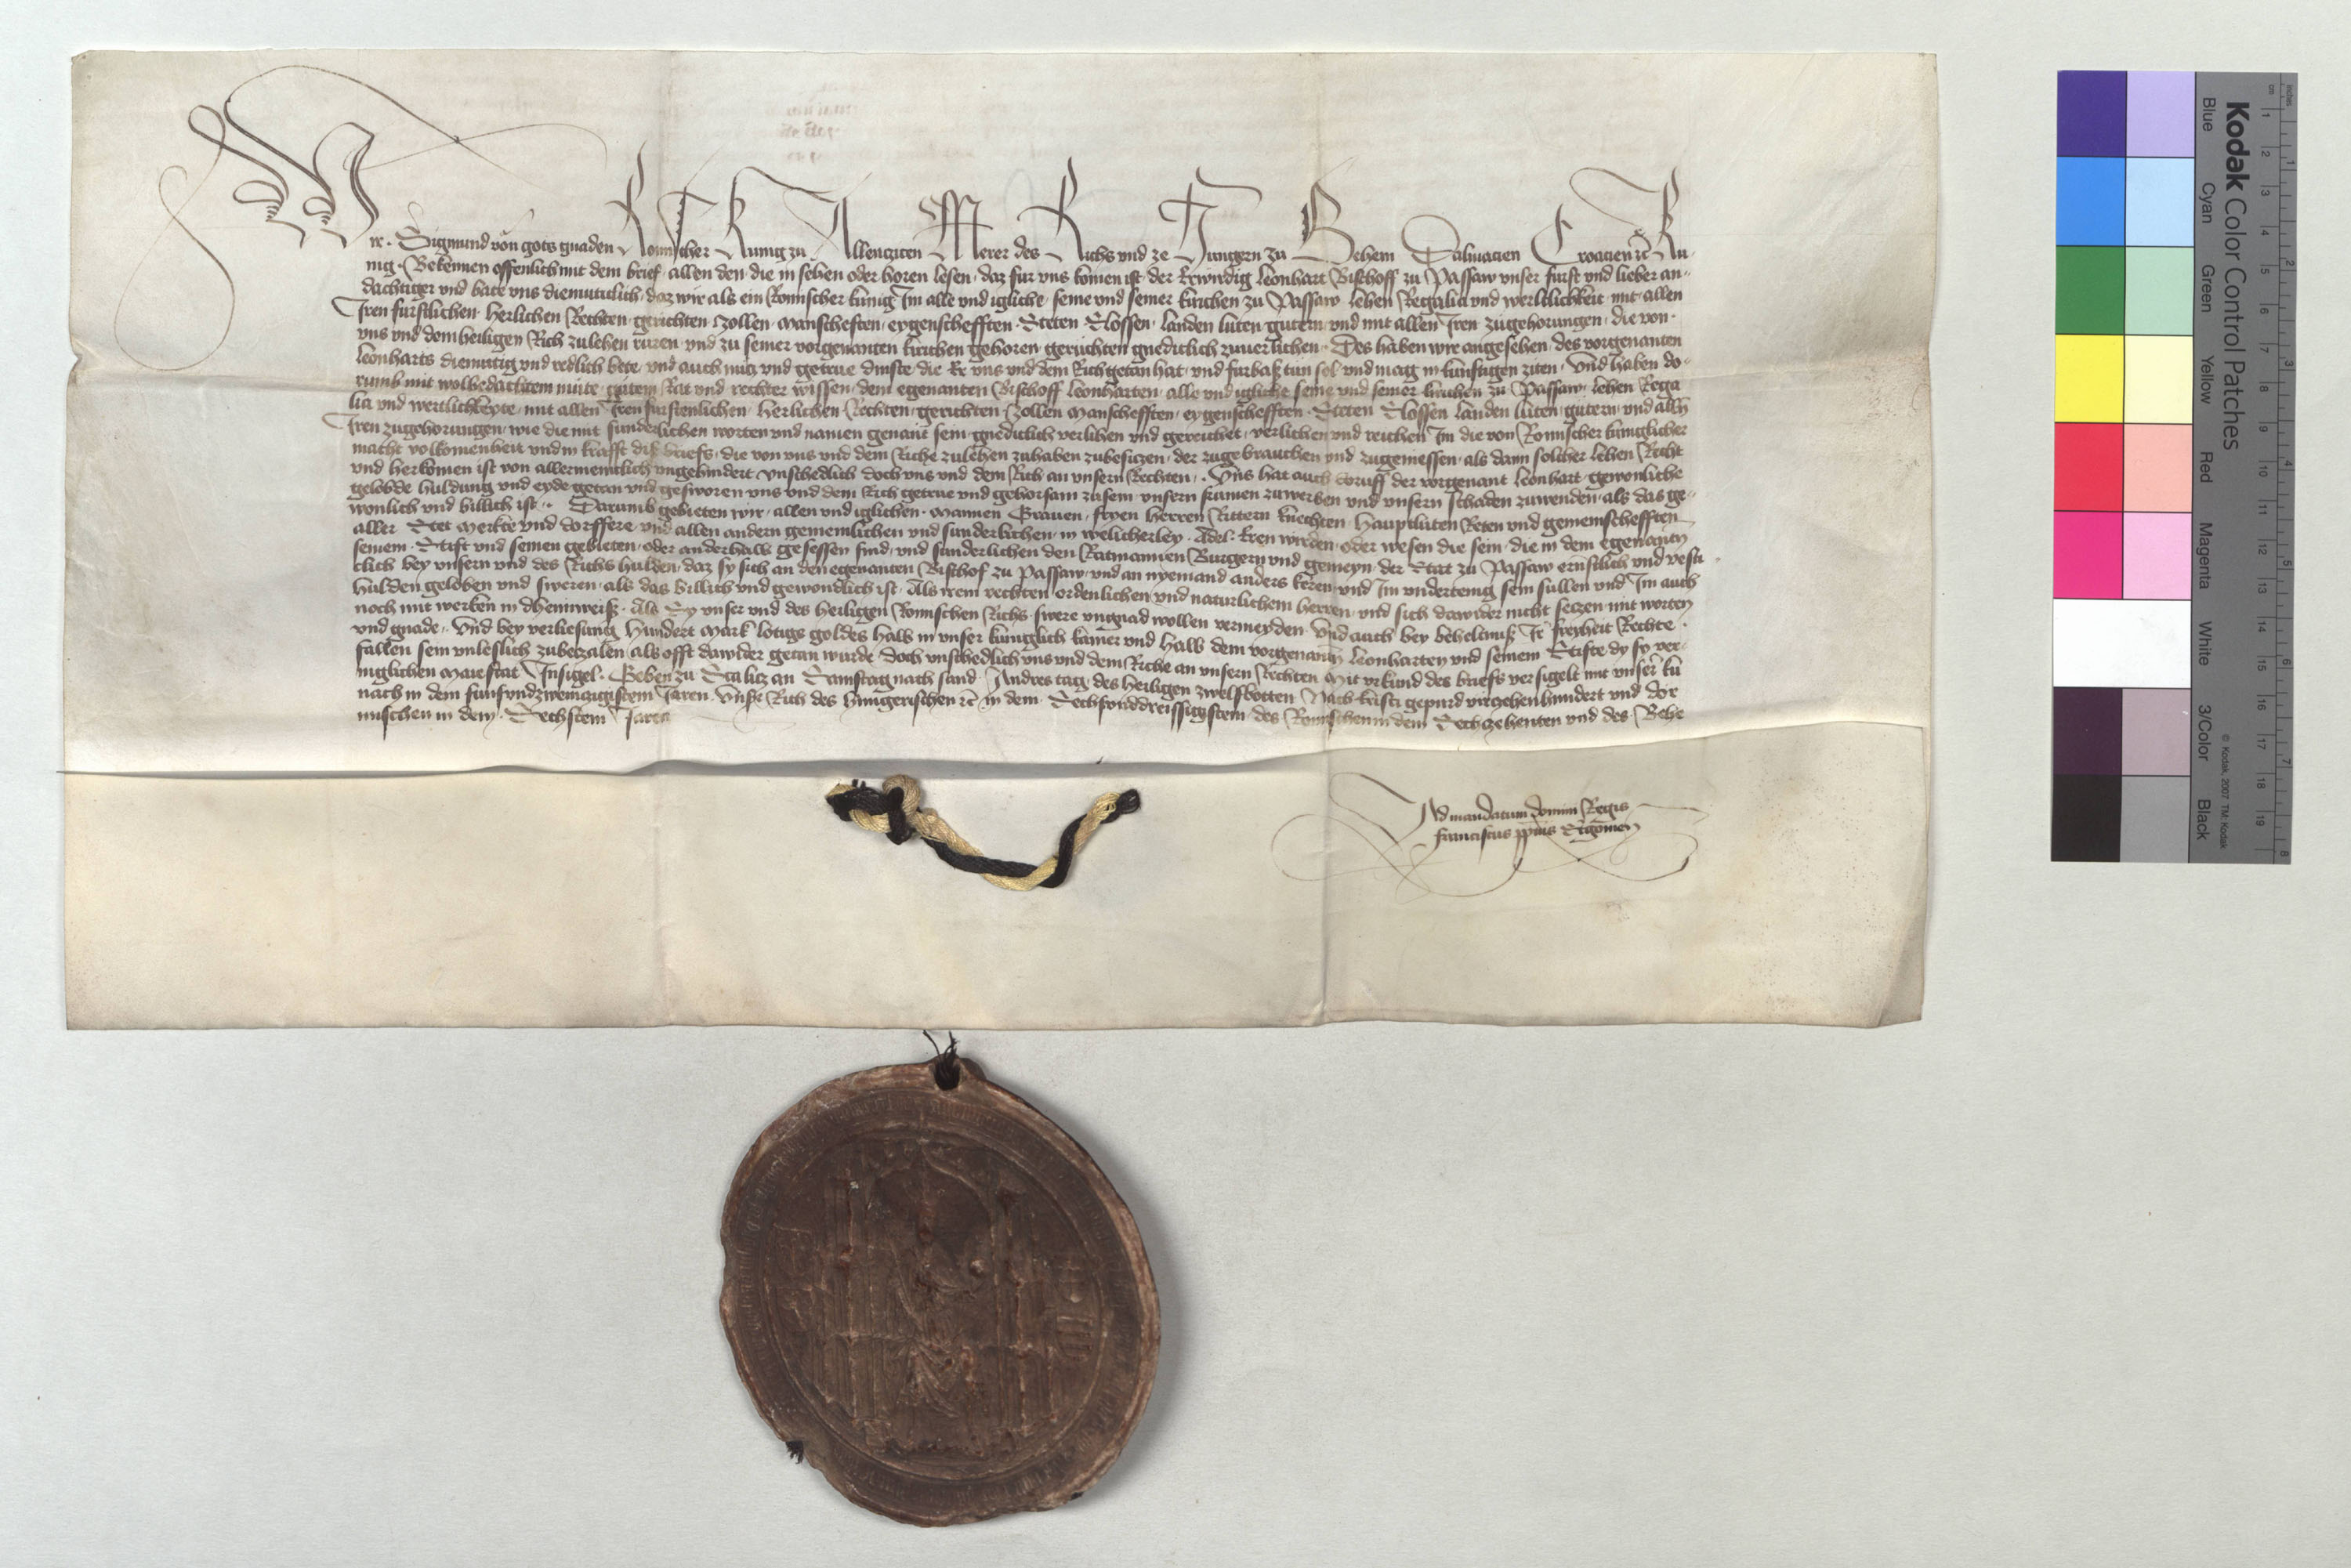 Wir Sigmund von gots gnaden Romischer Kunig zu Allentziten Merer des Richs und ze Hungern zu Behem Dalmacien Croacien rc Ku-
nig Bekennen offenlich mit dem brief allen den die in sehen oder horen lesen daz fur uns komen ist der Erwirdig Leonhart Bischoff zu Passaw unser furst und lieber an-
dachtiger und bate uns diemuticlich daz wir als ein Romischer kunig Im alle und igliche seine und seiner kirchen zu Passaw lehen Regalia und werltlichkeit mit allen
Iren furstlichen herlichen Rechten gerichten zollen manscheften eygenschefften Steten Slossen landen luten gutern und mit allen Iren zugehorungen die von
uns und dem heiligen Rich zulehen ruren und zu seiner vorgenanten kirchen gehoren geruchten gnediclich zuuerlihen Des haben wir angesehen des vorgenanten
Leonharts diemutig und redlich bete und auch nutz und getrue dinste die Er uns und dem Rich getan hat und furbaß tun sol und mag in kunfftigen ziten Und haben do-
rumb mit wolbedachtem mute gutem Rat und rechter wissen dem egenanten Bischoff Leonharten alle und igliche seine und seiner kirchen zu Passaw lehen Rega
lia und wertlichkeyte mit allen Iren furstenlichen herlichen Rechten gerichten zollen manschefften eygenschefften Steten Slossen landen luten gutern und allen
Iren zugehorungen wie die mit sunderlichen worten und namen genant sein gnediclich verlihen und gereichet verlihen und reichen Im die von Romischer kuniglicher
macht volkomenheit und in krafft diß briefs die von uns und dem Riche zulehen zuhaben zubesiczen der zugebrauchen und zugeniessen als dann solcher lehen Recht
und herkomen ist von allermeniclich ungehindert unschedlich doch uns und dem Rich an unsern Rechten Uns hat auch doruff der vorgenant Leonhart gewonliche
gelobde huldung und eyde getan und gesworen uns und dem Rich getrue und gehorsam zusein unsern frumen zuwerben und unsern schaden zuwenden als das ge-
wonlich und billich ist Darumb gebieten wir allen und iglichen mannen Grauen fryen herren Rittern knechten hauptluten Reten und gemeinschefften
aller Stet merkte und dorffere und allen andern gemeinlichen und sunderlichen in welicherley Adel Eren wirden oder wesen die sein die in dem egenanten
seinem Stift und seinen gebieten oder anderhalb gesessen sind und sunderlichen den Ratmannen Burgern und gemeyn der Stat zu Passaw ernstlich und vesti
clich bey unsern und des Richs hulden daz sy sich an den egenanten Bischof zu Passaw und an nyemand anders keren und Im undertenig sein sullen und Im auch
hulden geloben und sweren als das billich und gewondlich ist Als irem rechten ordenlichen und naturlichem herren und sich dawider nicht seczen mit worten
noch mit werken in dheinweiß Als Sy unser und des heiligen Romischen Richs swere ungnad wollen vermeyden Und auch bey beheltnuß Ir freyheit Rechte
und gnade Und bey verliesung hundert mark lotigs goldes halb in unser kuniglich kamer und halb dem vorgenanten Leonharten und seinem Stifte dy sy ver-
fallen sein unleslich zubezalen als offt dawider getan wurde doch unschedlich uns und dem Riche an unsern Rechten Mit urkund des briefs versigelt mit unser ku
niglichen maiestat Insigel Geben zu Scalicz an Samstag nach sand Andres tag des heiligen zwelfbotten Nach kristi gepurd virczehenhundert und dor
nach in dem funfundzweinczigistem Jaren Unsr Rich des hungerischen rc in dem Sechsunddreissigstem des Romischen in dem Sechczehenten und des Behe
mischen in dem Sechstem Jaren
Ad mandatum domini Regis
Franciscus ppitus Strigonien
Kodak Color Control Patches
Blue Cyan Green Yellow Red Magenta White 3/Color Black
© Kodak, 2007 TM: Kodak
cm 1 2 3 4 5 6 7 8 9 10 11 12 13 14 15 16 17 18 19
inches 1 2 3 4 5 6 7 8